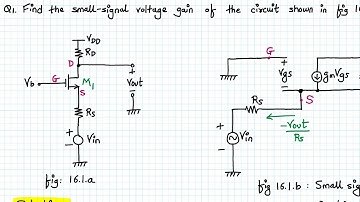 Q1. Find the small-signal voltage gain of the circuit shown in fig 16
VDD
RD
D
G
Vb
M1
S
+
Vout
-
RS
+
Vin
-
fig: 16.1.a
G
+
Vgs
-
gmVgs
S
RS
-Vout
RS
+
Vin
-
fig 16.1.b : Small sig